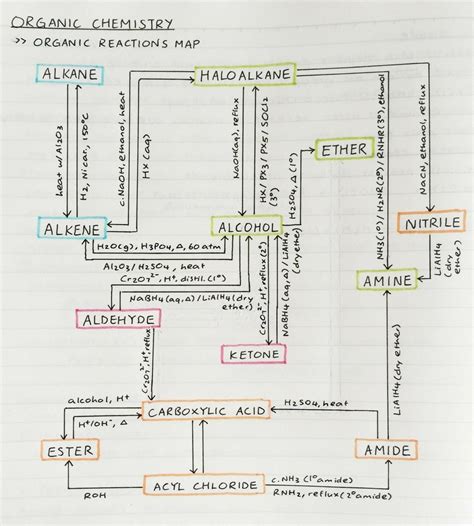 ORGANIC CHEMISTRY
>> ORGANIC REACTIONS MAP
ALKANE
HALOALKANE
heat w/Al2O3
H2, Ni cat, 150°C
c.NaOH, ethanol, heat
HX (aq)
NaOH(aq), reflux
HX / PX3 / PX5 / SOCl2
(3°)
H2SO4, Δ (1°)
ETHER
NH3(1°) / H2NR(2°) / RNHR(3°), ethanol
NaCN, ethanol, reflux
ALKENE
ALCOHOL
NITRILE
H2O(g), H3PO4, Δ, 60 atm
Al2O3/H2SO4, heat
Cr2O7²⁻, H⁺, distil. (1°)
NaBH4 (aq, Δ)/LiAlH4 (dry
ether)
Cr2O7²⁻, H⁺, reflux (2°)
NaBH4 (aq, Δ) / LiAlH4
(dry ether)
LiAlH4
(dry
ether)
AMINE
ALDEHYDE
KETONE
Cr2O7²⁻, H⁺, reflux
LiAlH4 (dry ether)
alcohol, H⁺
H⁺/OH⁻, Δ
CARBOXYLIC ACID
H2SO4, heat
ESTER
AMIDE
ROH
ACYL CHLORIDE
c.NH3 (1°amide)
RNH2, reflux (2°amide)